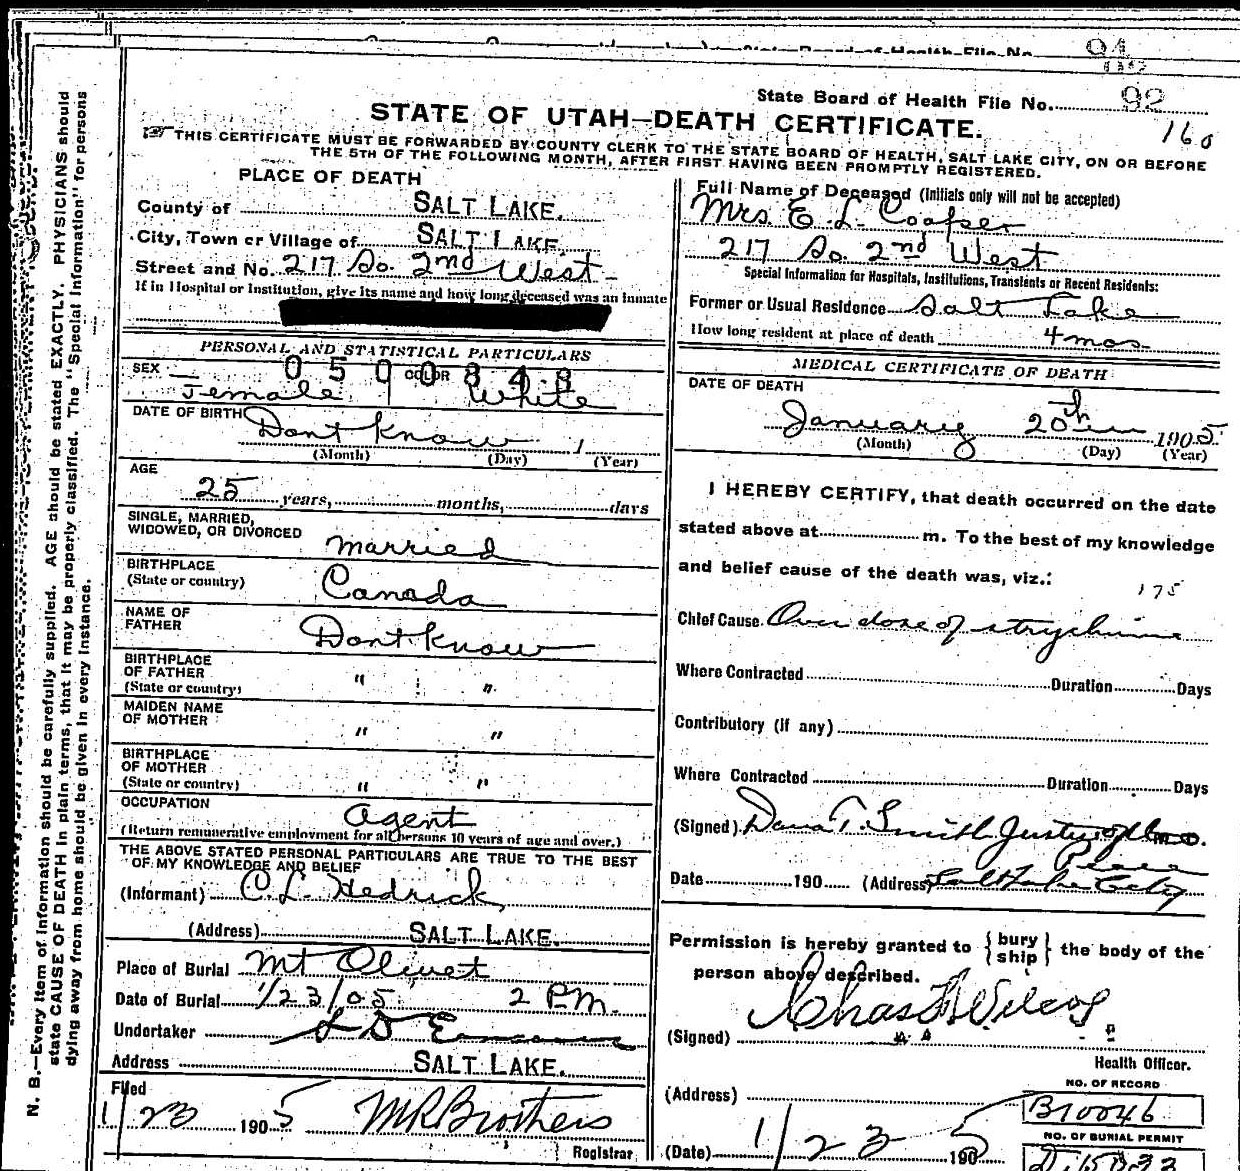 State Board of Health File No. 92
160
STATE OF UTAH—DEATH CERTIFICATE.
THIS CERTIFICATE MUST BE FORWARDED BY COUNTY CLERK TO THE STATE BOARD OF HEALTH, SALT LAKE CITY, ON OR BEFORE
THE 5TH OF THE FOLLOWING MONTH, AFTER FIRST HAVING BEEN PROMPTLY REGISTERED.
N. B.—Every item of Information should be carefully supplied. AGE should be stated EXACTLY. PHYSICIANS should
state CAUSE OF DEATH in plain terms, that it may be properly classified. The "Special Information" for persons
dying away from home should be given in every instance.
PLACE OF DEATH
County of SALT LAKE.
City, Town or Village of SALT LAKE.
Street and No. 217 So. 2nd West
If in Hospital or Institution, give its name and how long deceased was an inmate
PERSONAL AND STATISTICAL PARTICULARS
0500848
SEX Female COLOR White
DATE OF BIRTH Dont Know 1
(Month) (Day) (Year)
AGE
25 years, months, days
SINGLE, MARRIED,
WIDOWED, OR DIVORCED married
BIRTHPLACE
(State or country) Canada
NAME OF
FATHER Dont Know
BIRTHPLACE
OF FATHER
(State or country) " "
MAIDEN NAME
OF MOTHER " "
BIRTHPLACE
OF MOTHER
(State or country) " "
OCCUPATION Agent
(Return remunerative employment for all persons 10 years of age and over.)
THE ABOVE STATED PERSONAL PARTICULARS ARE TRUE TO THE BEST
OF MY KNOWLEDGE AND BELIEF
(Informant) C. L. Hedrick
(Address) SALT LAKE.
Place of Burial Mt Olivet
Date of Burial 1/23/05 2 PM.
Undertaker S D
Address SALT LAKE.
Filed
1/23 1905 MR Brothers
Registrar
Full Name of Deceased (Initials only will not be accepted)
Mrs E. L. Cooper
217 So. 2nd West
Special Information for Hospitals, Institutions, Transients or Recent Residents:
Former or Usual Residence Salt Lake
How long resident at place of death 4 mos
MEDICAL CERTIFICATE OF DEATH
DATE OF DEATH
January 20th 1905
(Month) (Day) (Year)
I HEREBY CERTIFY, that death occurred on the date
stated above at m. To the best of my knowledge
and belief cause of the death was, viz.:
175
Chief Cause Over dose of strychnine
Where Contracted Duration Days
Contributory (if any)
Where Contracted Duration Days
(Signed) Dana T. Smith Justice of the
Peace
Date 190 (Address) Salt Lake City
Permission is hereby granted to {bury ship} the body of the
person above described.
(Signed) Chas F Wilcox
Health Officer.
(Address)
NO. OF RECORD
B10046
NO. OF BURIAL PERMIT
(Date) 1/23 1905